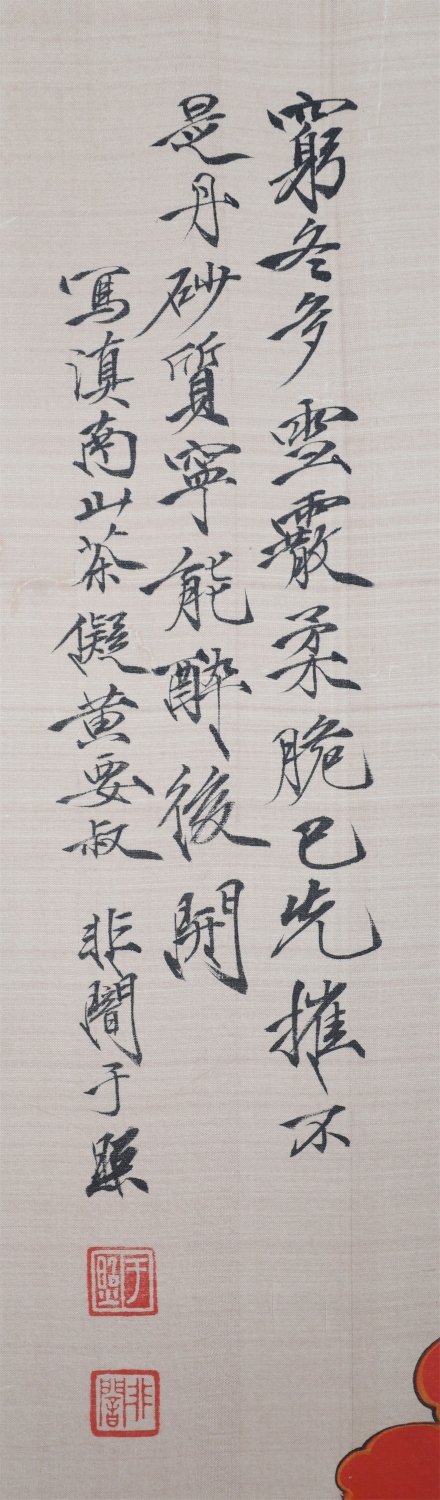 窮冬多雲霰柔脆已先摧不
是丹砂質寧能醉後開
寫滇南山茶儗黄要叔 非闇于照
于照
非闇